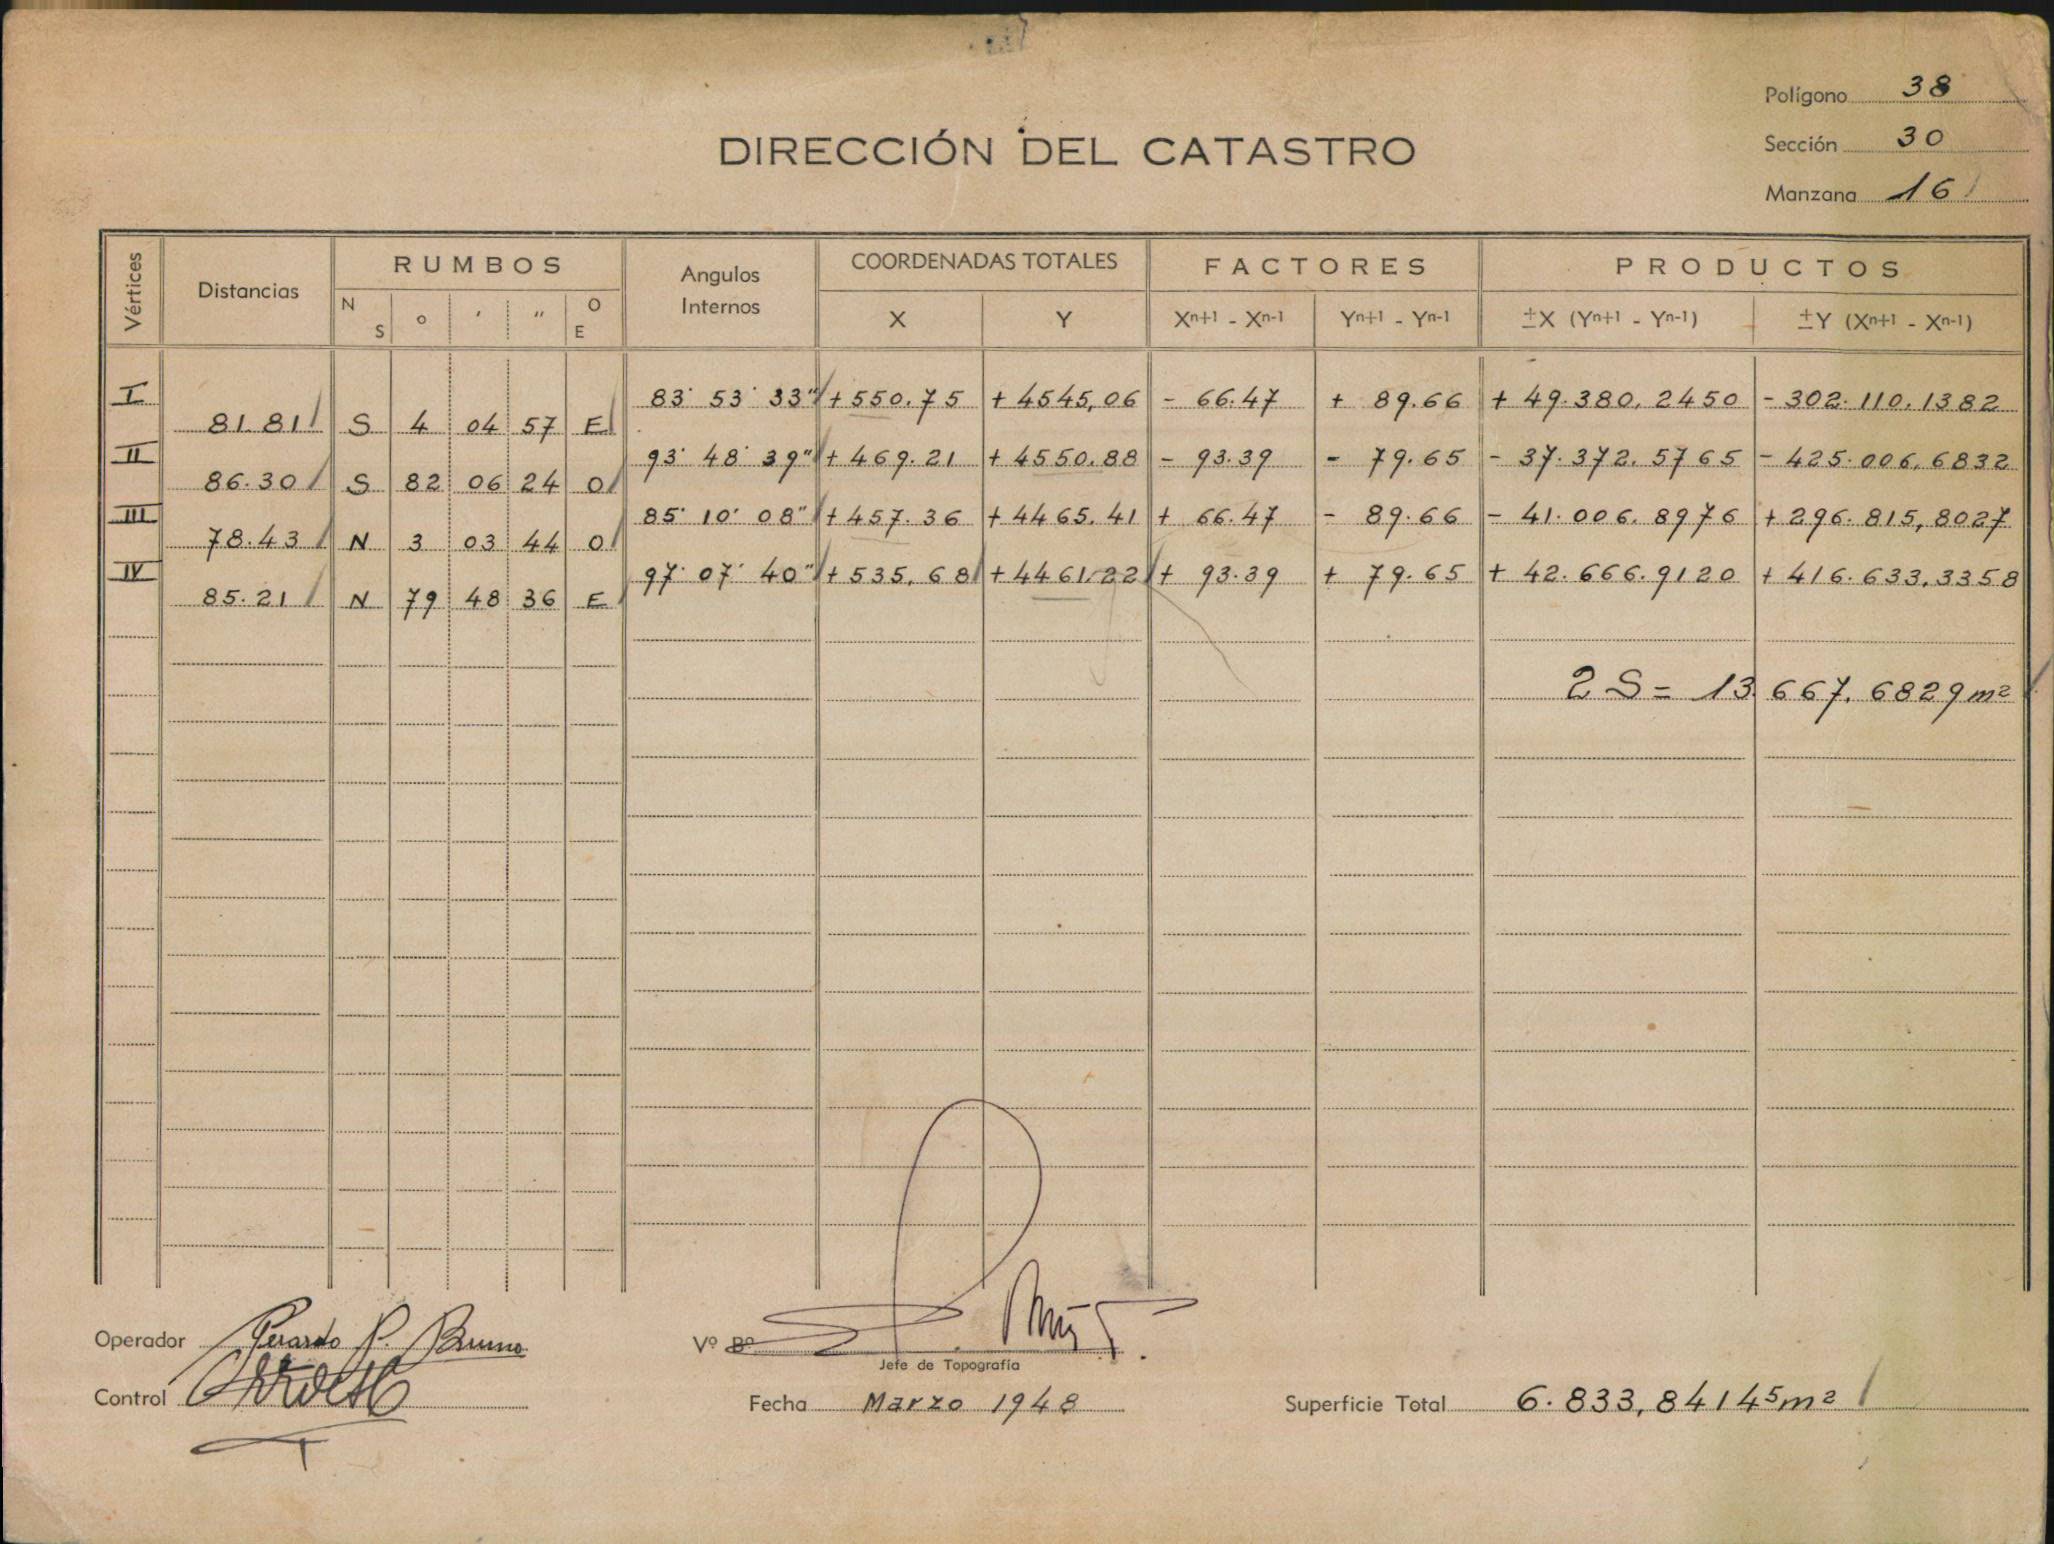 Polígono 38
DIRECCIÓN DEL CATASTRO
Sección 30
Manzana 16
Vértices Distancias RUMBOS Angulos Internos COORDENADAS TOTALES FACTORES PRODUCTOS
N S o ′ ″ O E X Y Xn+1 - Xn-1 Yn+1 - Yn-1 ±X (Yn+1 - Yn-1) ±Y (Xn+1 - Xn-1)
I 83° 53′ 33″ + 550.75 + 4545,06 - 66.47 + 89.66 + 49.380,2450 - 302.110,1382
81.81 S 4 04 57 E
II 93° 48′ 39″ + 469.21 + 4550.88 - 93.39 - 79.65 - 37.372.5765 - 425.006,6832
86.30 S 82 06 24 O
III 85° 10′ 08″ + 457.36 + 4465.41 + 66.47 - 89.66 - 41.006.8976 + 296.815,8027
78.43 N 3 03 44 O
IV 97° 07′ 40″ + 535.68 + 4461.22 + 93.39 + 79.65 + 42.666.9120 + 416.633,3358
85.21 N 79 48 36 E
2 S = 13.667,6829 m²
Operador Gerardo P. Bruno Vº Bº
Jefe de Topografía
Control Fecha Marzo 1948 Superficie Total 6.833,84145 m²